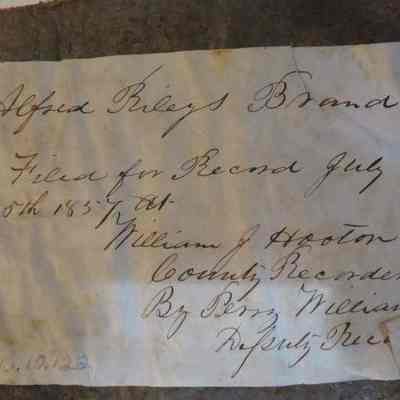 Alfred Rileys Brand
Filed for Record July
5th 1857 At
William J Hooton
County Recorder
By Perry William
Deputy Rec